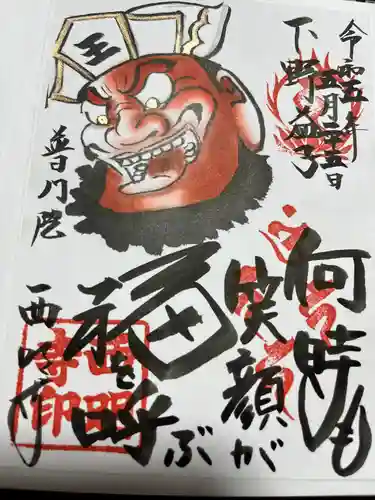 令和五年
五月二十五日
下野益子
王
普門院
何時も
笑顔が
福を呼ぶ
西明寺
西明寺印